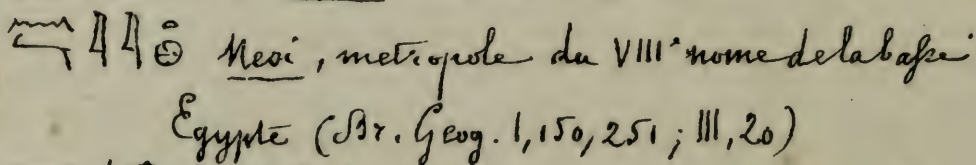 𓈖𓂝𓇋𓇋𓏏𓊖 Nesi, metropole du VIII e nome de la basse
Égypte (Br. Geog. I, 150, 251 ; III, 20)